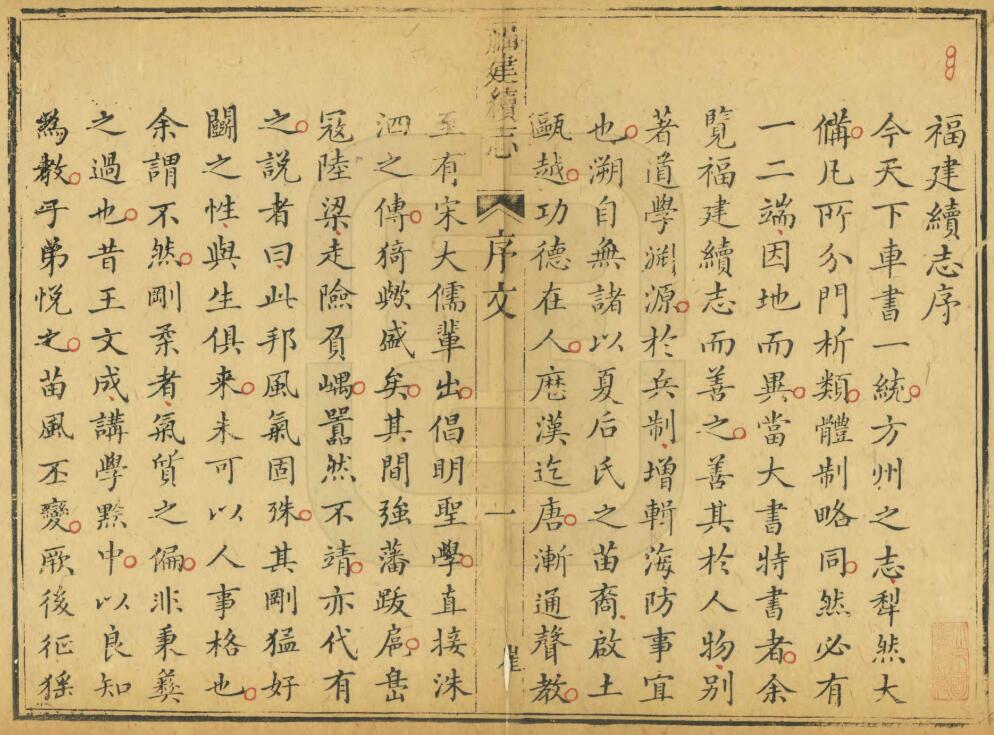 福建續志序
今天下車書一統方州之志犁然大
備凡所分門析類體制略同然必有
一二端因地而異當大書特書者余
覽福建續志而善之善其於人物別
著道學淵源於兵制增輯海防事宜
也溯自無諸以夏后氏之苗裔啟土
甌越功德在人歷漢迄唐漸通聲教
福建續志
序文
一
至有宋大儒輩出倡明聖學直接洙
泗之傳猗歟盛矣其間強藩跋扈島
寇陸梁走險負嵎嚣然不靖亦代有
之說者曰此邦風氣固殊其剛猛好
鬭之性與生俱來未可以人事格也
余謂不然剛柔者氣質之偏非秉彝
之過也昔王文成講學黔中以良知
為教子弟悅之苗風丕變厥後征猺